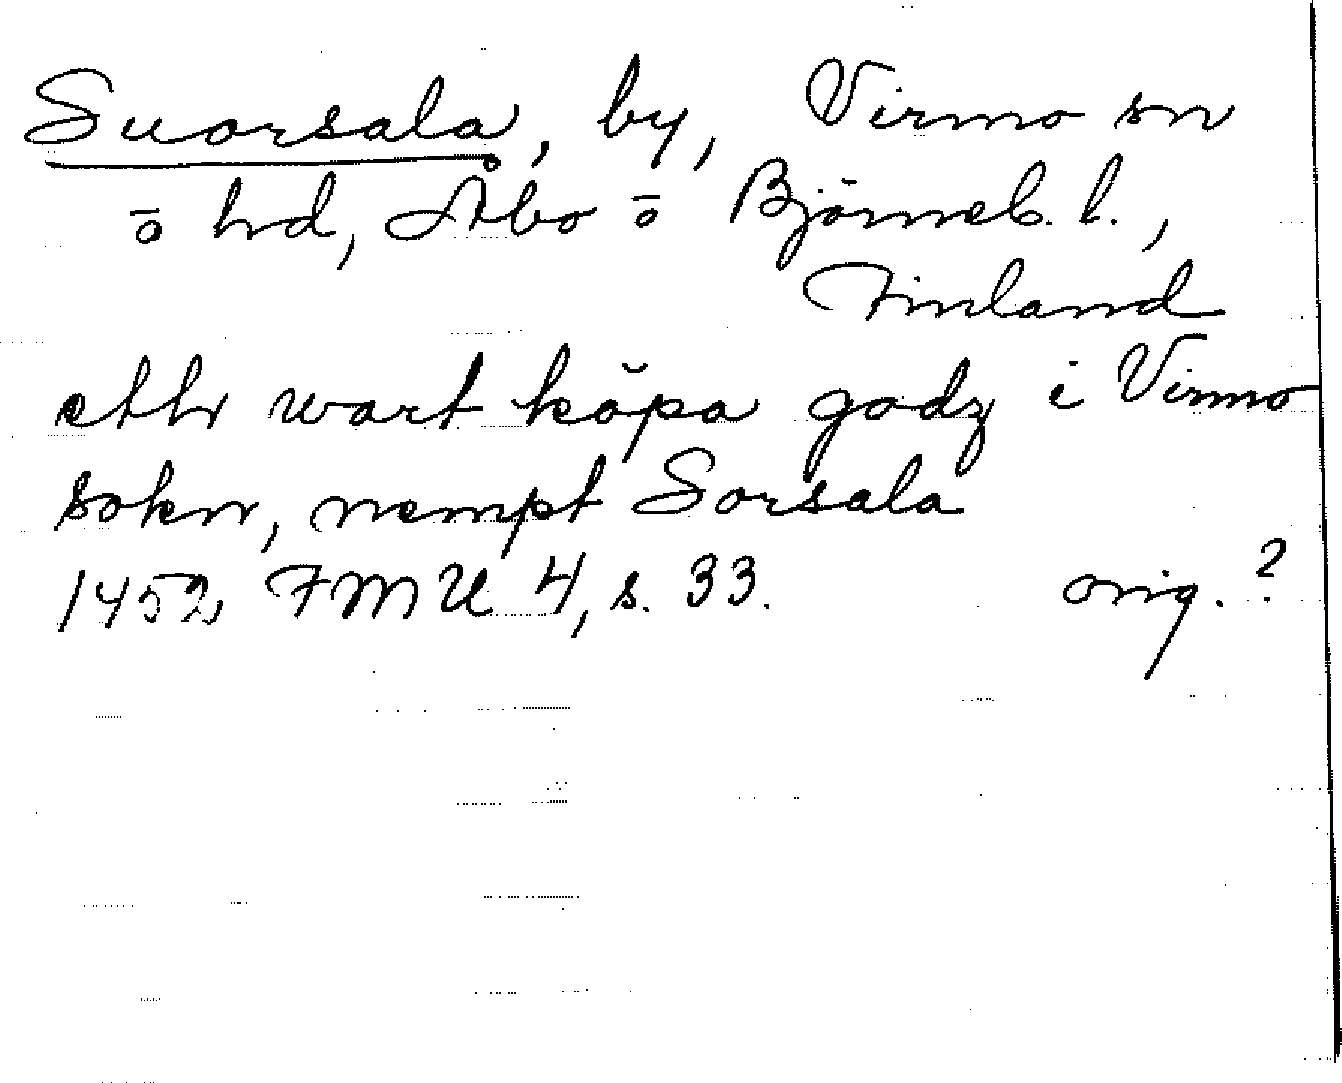 Suorsala, by, Virmo sn
ö hd, Åbo ö Björneb. l.,
Finland
etth wart köpa godz i Virmo
sokn, nempt Sorsala
1452 FMU 4, s. 33. orig.?